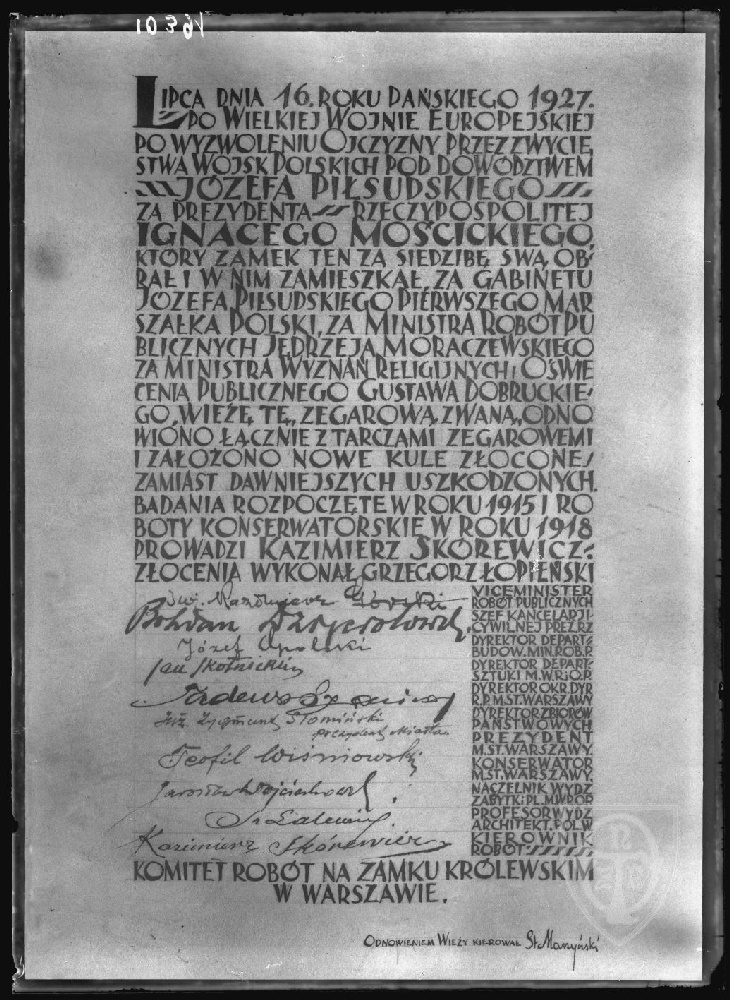 10391
LIPCA DNIA 16. ROKU PAŃSKIEGO 1927.
PO WIELKIEJ WOJNIE EUROPEJSKIEJ
PO WYZWOLENIU OJCZYZNY PRZEZ ZWYCIĘ
STWA WOJSK POLSKICH POD DOWÓDZTWEM
JÓZEFA PIŁSUDSKIEGO
ZA PREZYDENTA RZECZYPOSPOLITEJ
IGNACEGO MOŚCICKIEGO,
KTÓRY ZAMEK TEN ZA SIEDZIBĘ SWĄ OB-
RAŁ I W NIM ZAMIESZKAŁ, ZA GABINETU
JÓZEFA PIŁSUDSKIEGO PIERWSZEGO MAR
SZAŁKA POLSKI, ZA MINISTRA ROBÓT PU
BLICZNYCH JĘDRZEJA MORACZEWSKIEGO
ZA MINISTRA WYZNAŃ RELIGIJNYCH I OŚWIE
CENIA PUBLICZNEGO GUSTAWA DOBRUCKIE-
GO, WIEŻĘ TĘ, ZEGAROWĄ ZWANĄ, ODNO
WIONO ŁĄCZNIE Z TARCZAMI ZEGAROWEMI
I ZAŁOŻONO NOWE KULE ZŁOCONE
ZAMIAST DAWNIEJSZYCH USZKODZONYCH.
BADANIA ROZPOCZĘTE W ROKU 1915 I RO
BOTY KONSERWATORSKIE W ROKU 1918
PROWADZI KAZIMIERZ SKÓREWICZ:
ZŁOCENIA WYKONAŁ GRZEGORZ ŁOPIEŃSKI
Inż. Kazimierz Górski VICEMINISTER
ROBÓT PUBLICZNYCH
Bohdan SZEF KANCELARJI
CYWILNEJ PREZ. RZ
Józef Opolski DYREKTOR DEPART-
BUDOW. MIN. ROB. P.
Jan Skotnicki DYREKTOR DEPART-
SZTUKI M. W. R. i O. P.
Tadeusz DYREKTOR OKR. DYR
R. P. M. ST. WARSZAWY
DYREKTOR ZBIORÓW
PAŃSTWOWYCH
Inż. Zygmunt Słomiński PREZYDENT
prezydent Miasta M. ST. WARSZAWY.
Teofil Wiśniowski KONSERWATOR
M. ST. WARSZAWY.
Jarosław Wojciechowski NACZELNIK WYDZ
ZABYTK: PL. M W R O P
PROFESOR WYDZ
ARCHITEKT. POL. W
Kazimierz Skórewicz KIEROWNIK
ROBÓT
KOMITET ROBÓT NA ZAMKU KRÓLEWSKIM
W WARSZAWIE.
ODNOWIENIEM WIEŻY KIEROWAŁ St. Marzyński